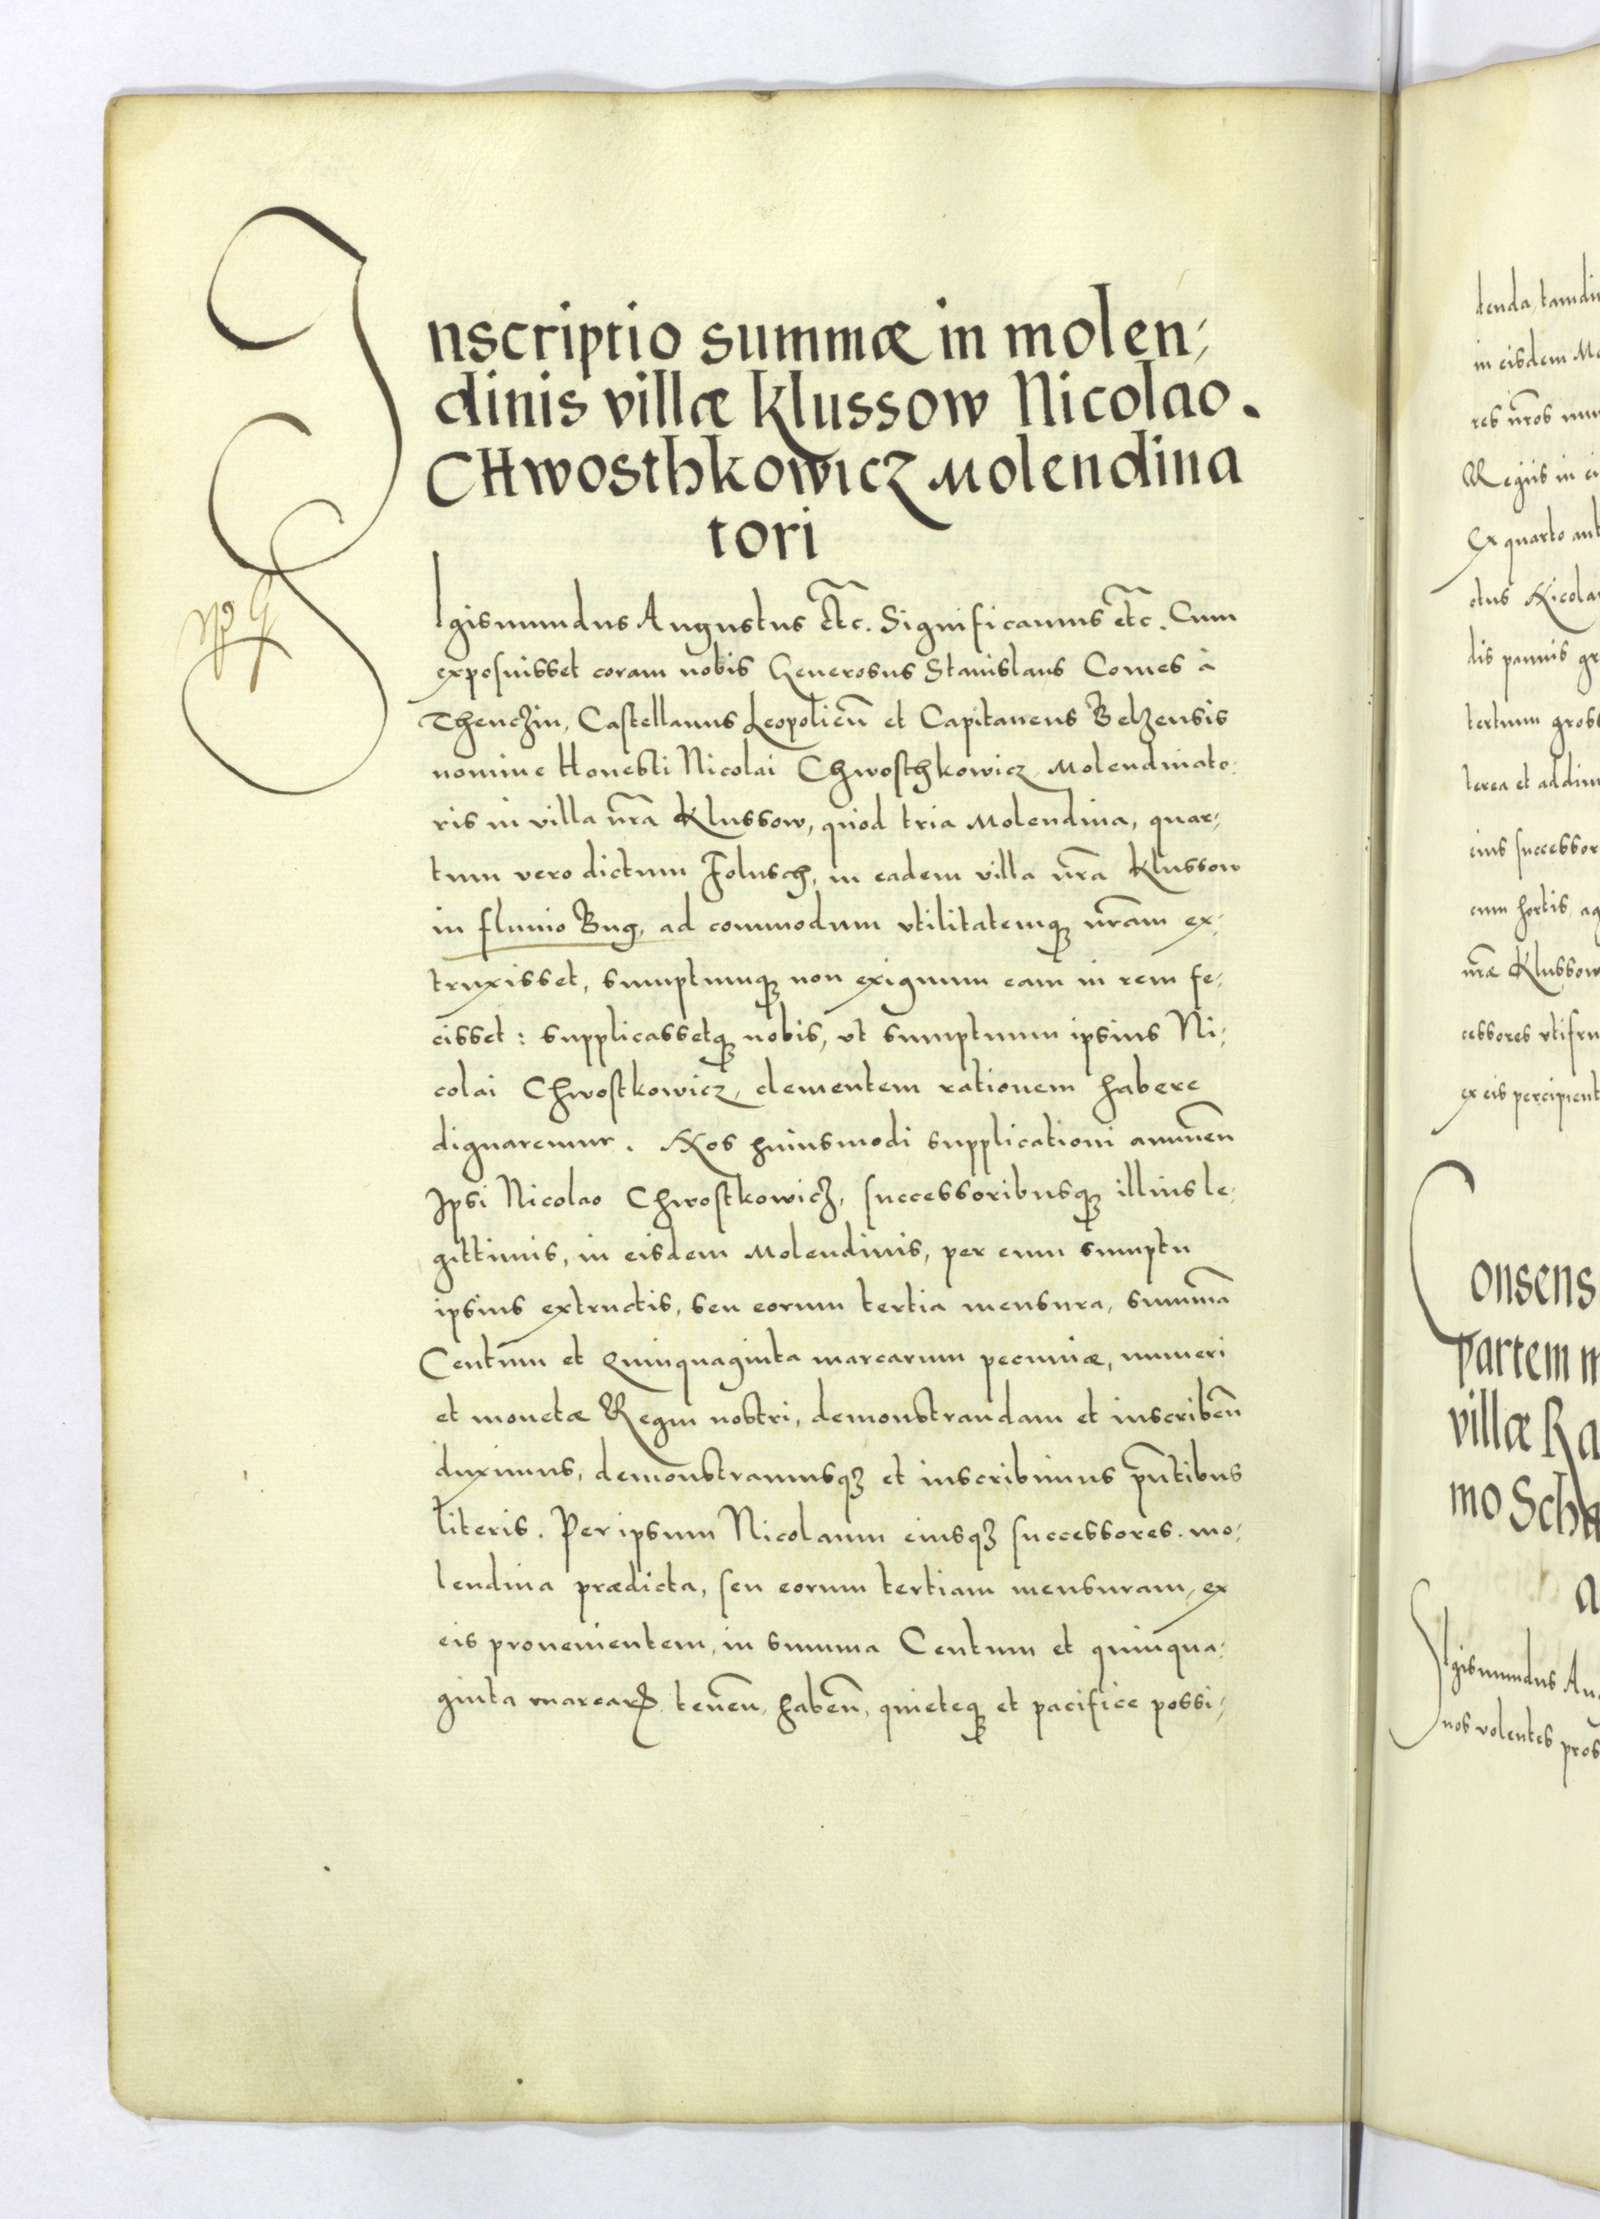 Inscriptio summæ in molen,
dinis villæ Klussow Nicolao.
CHwosthkowicz Molendina
tori
Sigismundus Augustus Etc̄. Significamus etc̄. Cum
exposuisset coram nobis Generosus Stanislaus Comes à
Thenczin, Castellanus Leopolien̄ et Capitaneus Belzensis
nomine Honesti Nicolai Chwosthkowicz Molendinato:
ris in villa nr̄a Klussow, quod tria Molendina, quar,
tum vero dictum Folusch, in eadem villa nr̄a Klussow
in fluuio Bug, ad commodum vtilitatemq̨ nr̄am ex,
truxisset, sumptumq̨ non exiguum eam in rem fe,
cisset: supplicassetq̨ nobis, vt sumptuum ipsius Ni,
colai Chwostkowicz, clementem rationem habere
dignaremur. Nos huiusmodi supplicationi annuen̄
Ipsi Nicolao Chwostkowicz, successoribusq̨ illius le,
gittimis, in eisdem Molendinis, per eum sumptu
ipsius extructis, seu eorum tertia mensura, summā
Centum et Quinquaginta marcarum pecuniæ, numeri
et monetæ Regni nostri, demonstrandam et inscriben̄
duximus, demonstramusqꝫ et inscribimus pn̄tibus
literis. Per ipsum Nicolaum eiusqꝫ successores. mo,
lendina prædicta, seu eorum tertiam mensuram, ex
eis prouenientem, in summa Centum et quinqua,
ginta marcarꝝ, tenen̄, haben̄, quieteq̨ et pacifice possi,
tenda, tamdiu
in eisdem Mo
res nr̄os
Regiis in ei
Ex quarto
Nicola
dis pannis gr
tertium gross
terea et addim
eius successor
cum hortis, ag
nr̄æ Klussow
cessores vtifru
ex eis percipient
Consens
partem m
villæ Ra
mo Scha
a
Sigismundus Au
nos volentes pros